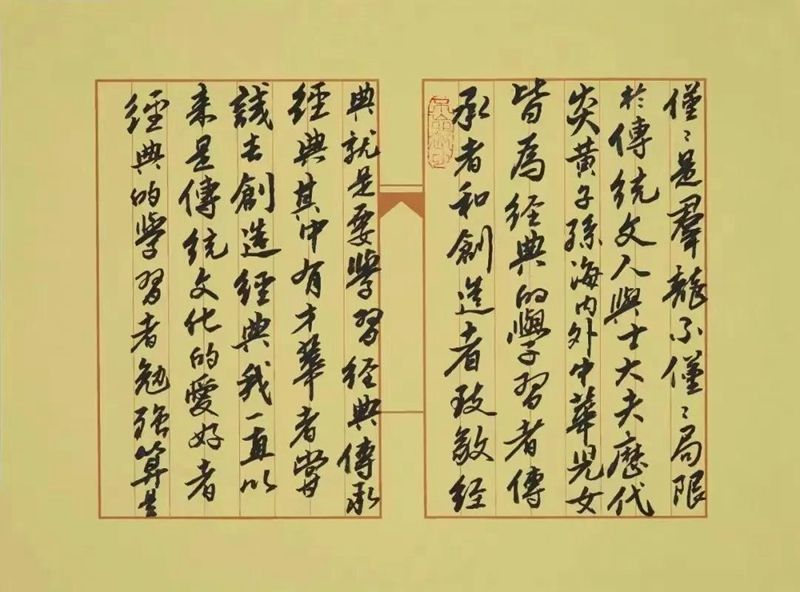 僅〻是羣龍不僅〻局限
於傳統文人與士大夫歷代
炎黃子孫海内外中華兒女
皆爲經典的學習者傳
承者和創造者致敬經
典就是要學習經典傳承
經典其中有才華者嘗
試去創造經典我一直以
来是傳統文化的愛好者
經典的學習者勉強算是